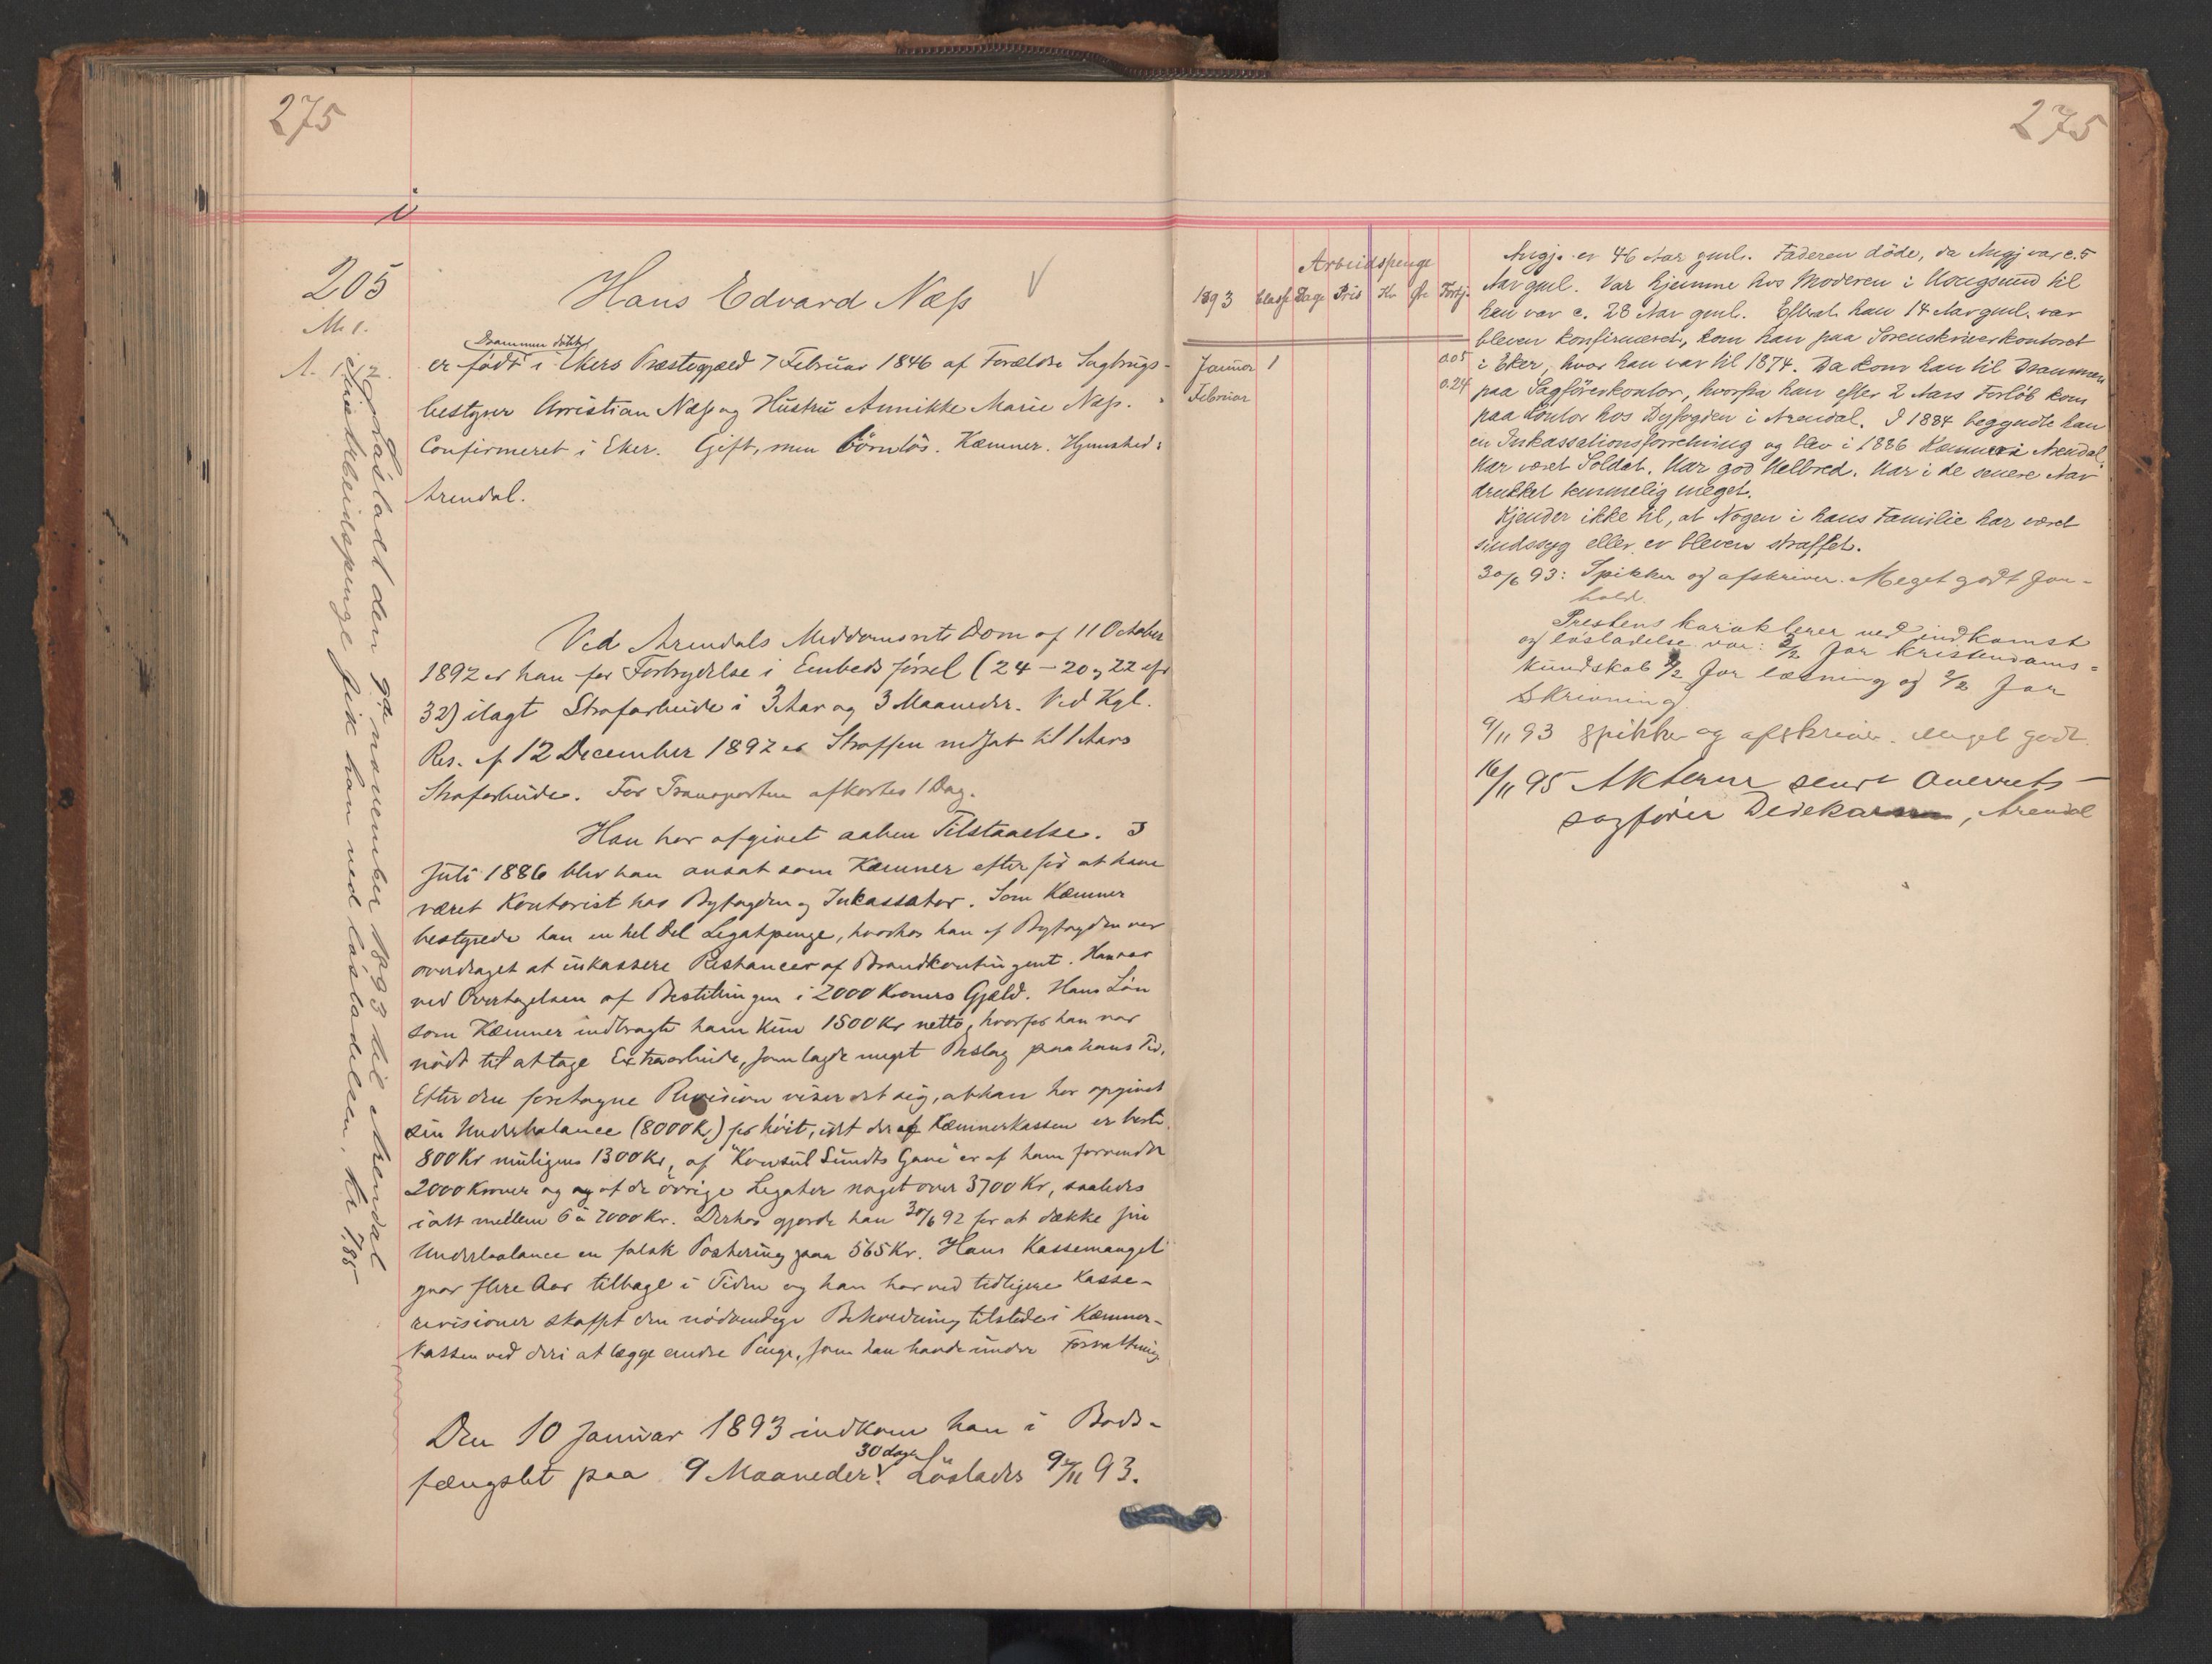 275
275
i
205
M. 1.
A. 1.12.
Hans Edvard Næss
V
Drammen döbt
er födt i Ekers Præstegjæld 7 Februar 1846 af Forældre Sagbrugs-
bestyrer Christian Næss og Hustru Annikke Marie Næss.
Confirmeret i Eker. Gift, men börnlös. Kæmner. Hjemsted:
Arendal.
Ved Arendals Meddomsrets Dom af 11 October
1892 er han for Forbrydelse i Embedsförsel (24 – 20 og 22 cfr
32) ilagt Strafarbeide i 3 Aar og 3 Maaneder. Ved Kgl.
Res. af 12 December 1892 er Straffen nedsat til 1 Aars
Strafarbeide. For Transporten afkortes 1 Dag.
Han har afgivet aaben Tilstaaelse. I
Juli 1886 blev han ansat som Kæmner efter för at have
været Kontorist hos Byfogden og Inkassator. Som Kæmner
bestyrede han en hel Del Legatpenge, hvorhos han af Byfogden var
overdraget at inkassere Restancer af Brandkontingent. Han var
ved Overtagelsen af Bestillingen i 2000 Kroners Gjæld. Hans Lön
som Kæmner indbragte ham kun 1500 Kr netto, hvorfor han var
nödt til at tage Extraarbeide, som lagde meget Beslag paa hans Tid.
Efter den foretagne Revision viser det sig, at han har opgivet
sin Underbalance (8000 Kr) for höit, idet der af Kæmnerkassen er
800 Kr muligens 1300 Kr, af "Konsul Sundts Gave" er af ham forvendt
2000 Kroner og af de övrige Legater noget over 3700 Kr, saaledes
i alt mellem 6 à 7000 Kr. Derhos gjorde han 30/6 92 for at dække sin
Underbalance en falsk Postering paa 565 Kr. Hans Kassemangel
gaar flere Aar tilbage i Tiden og han har ved tidligere Kasse-
revisioner skaffet den nödvendige Beholdning tilstede i Kæmner-
kassen ved deri at lægge andre Penge, som han havde under Forvaltning
Den 10 Januar 1893 indkom han i Bods-
fængslet paa 9 Maaneder 30 dage. Löslades 9/11 93.
Lösladt den 9de november 1893 til Arendal
sine Arbeidspenge fik han ved lösladelsen, Kr 7,85
Arbeidspenge
1893 Classe Dage Pris Kr Öre Fortj.
Januar 1 0.05
Februar 0.24
Angj. er 46 Aar gml. Faderen döde, da Angj var c. 5
Aar gml. Var hjemme hos Moderen i Hougsund til
han var c. 28 Aar gml. Efterat han 14 Aar gml. var
bleven konfirmeret, kom han paa Sorenskriverkontoret
i Eker, hvor han var til 1874. Da kom han til Drammen
paa Sagförerkontor, hvorfra han efter 2 Aars Forlöb kom
paa Kontor hos Byfogden i Arendal. I 1884 begyndte han
en Inkassationsforretning og blev i 1886 Kæmner i Arendal.
Har været Soldat. Har god Helbred. Har i de senere Aar
drukket temmelig meget.
Kjender ikke til, at Nogen i hans Familie har været
sindssyg eller er bleven straffet.
30/6 93: Spikker og afskriver. Meget godt For-
hold.
Prestens karakterer ved indkomst
og lösladelse var: 2/2 for kristendoms-
kundskab 2/2 for læsning og 2/2 for
Skrivning.
9/11 93 Spikker og afskriver. Meget godt.
16/11 95 Akterne sendt Overrets-
sagförer Dedekam, Arendal